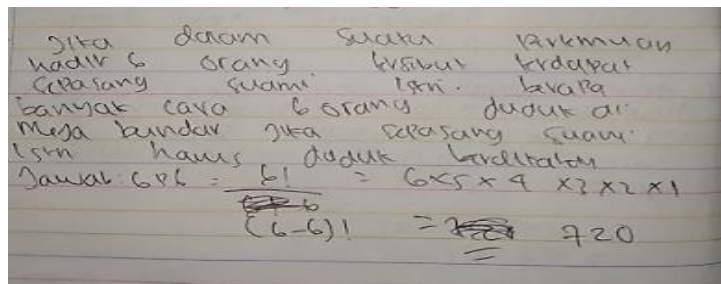 Jika dalam suatu Pertemuan
hadir 6 orang tersebut terdapat
sepasang suami istri. berapa
banyak cara 6 orang duduk di
meja bundar Jika sepasang suami
istri harus duduk berdekatan
Jawab: 6P6 = 6! = 6x5x4x3x2x1
(6-6)! = 720